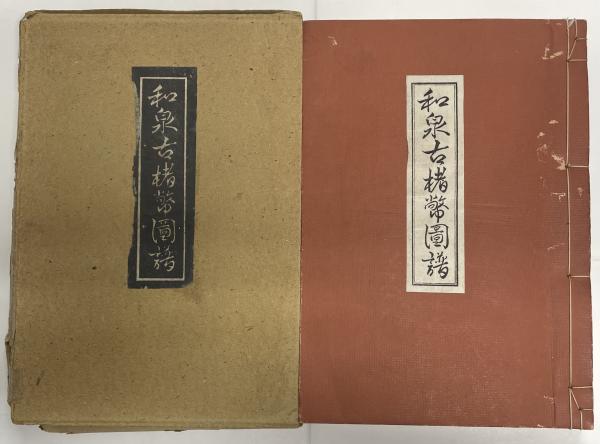 和泉古楮幣圖譜
和泉古楮幣圖譜